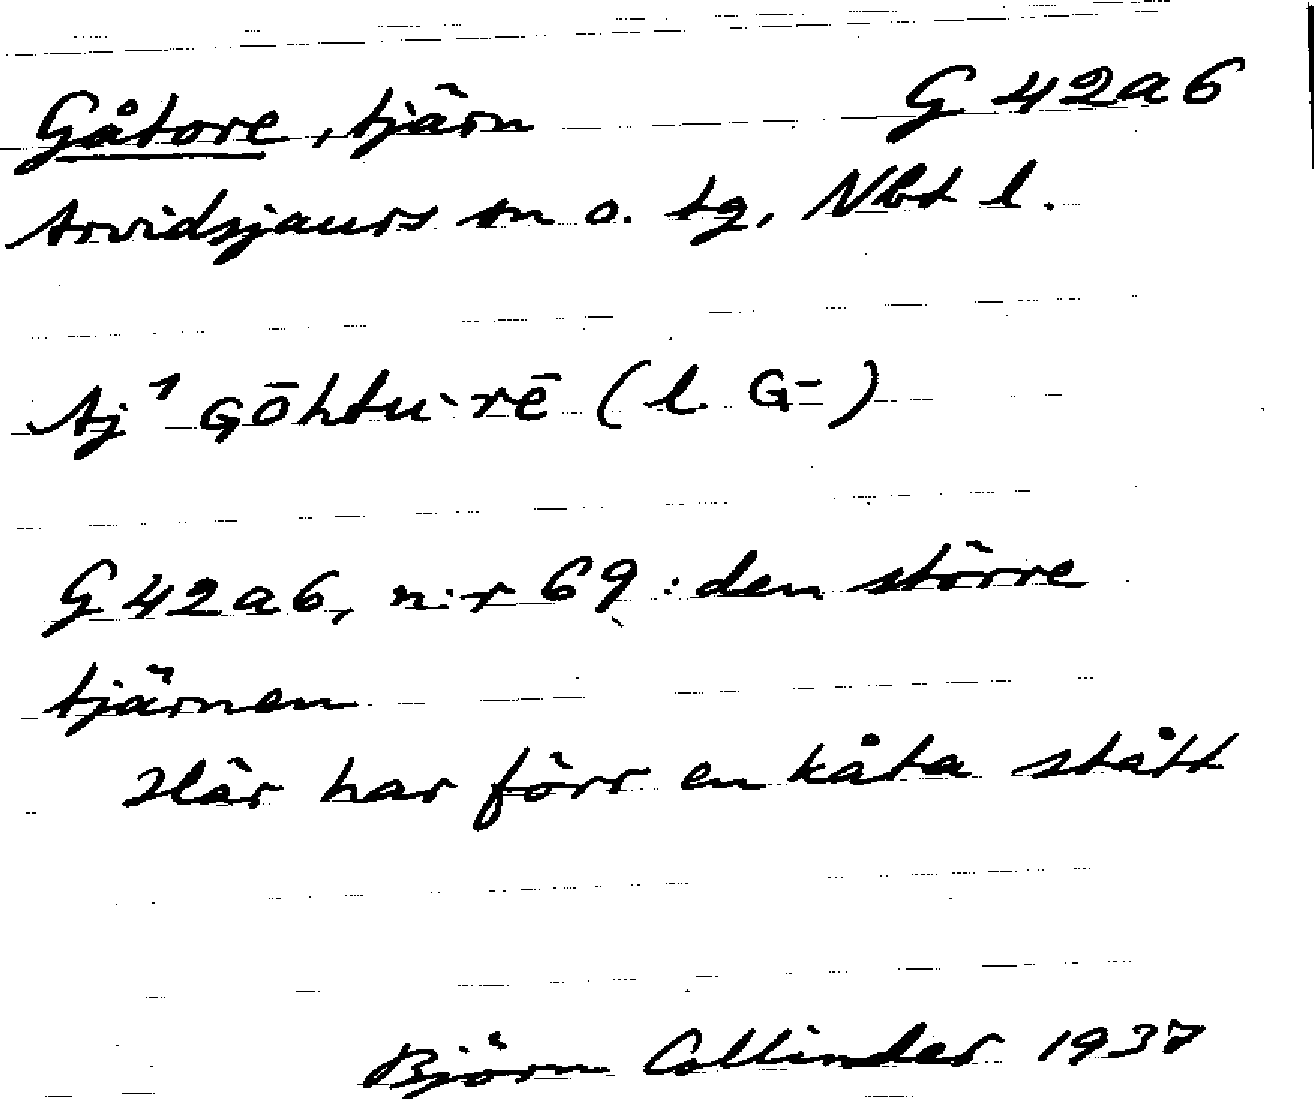 Gåtore, tjärn G 42a6
Arvidsjaurs sn o. tg, Nbt l.
Aj¹ Gōhtu-rē (l G=)
G 42a6, n:r 69: den större
tjärnen
Här har förr en kåta stått
Björn Collinder 1937